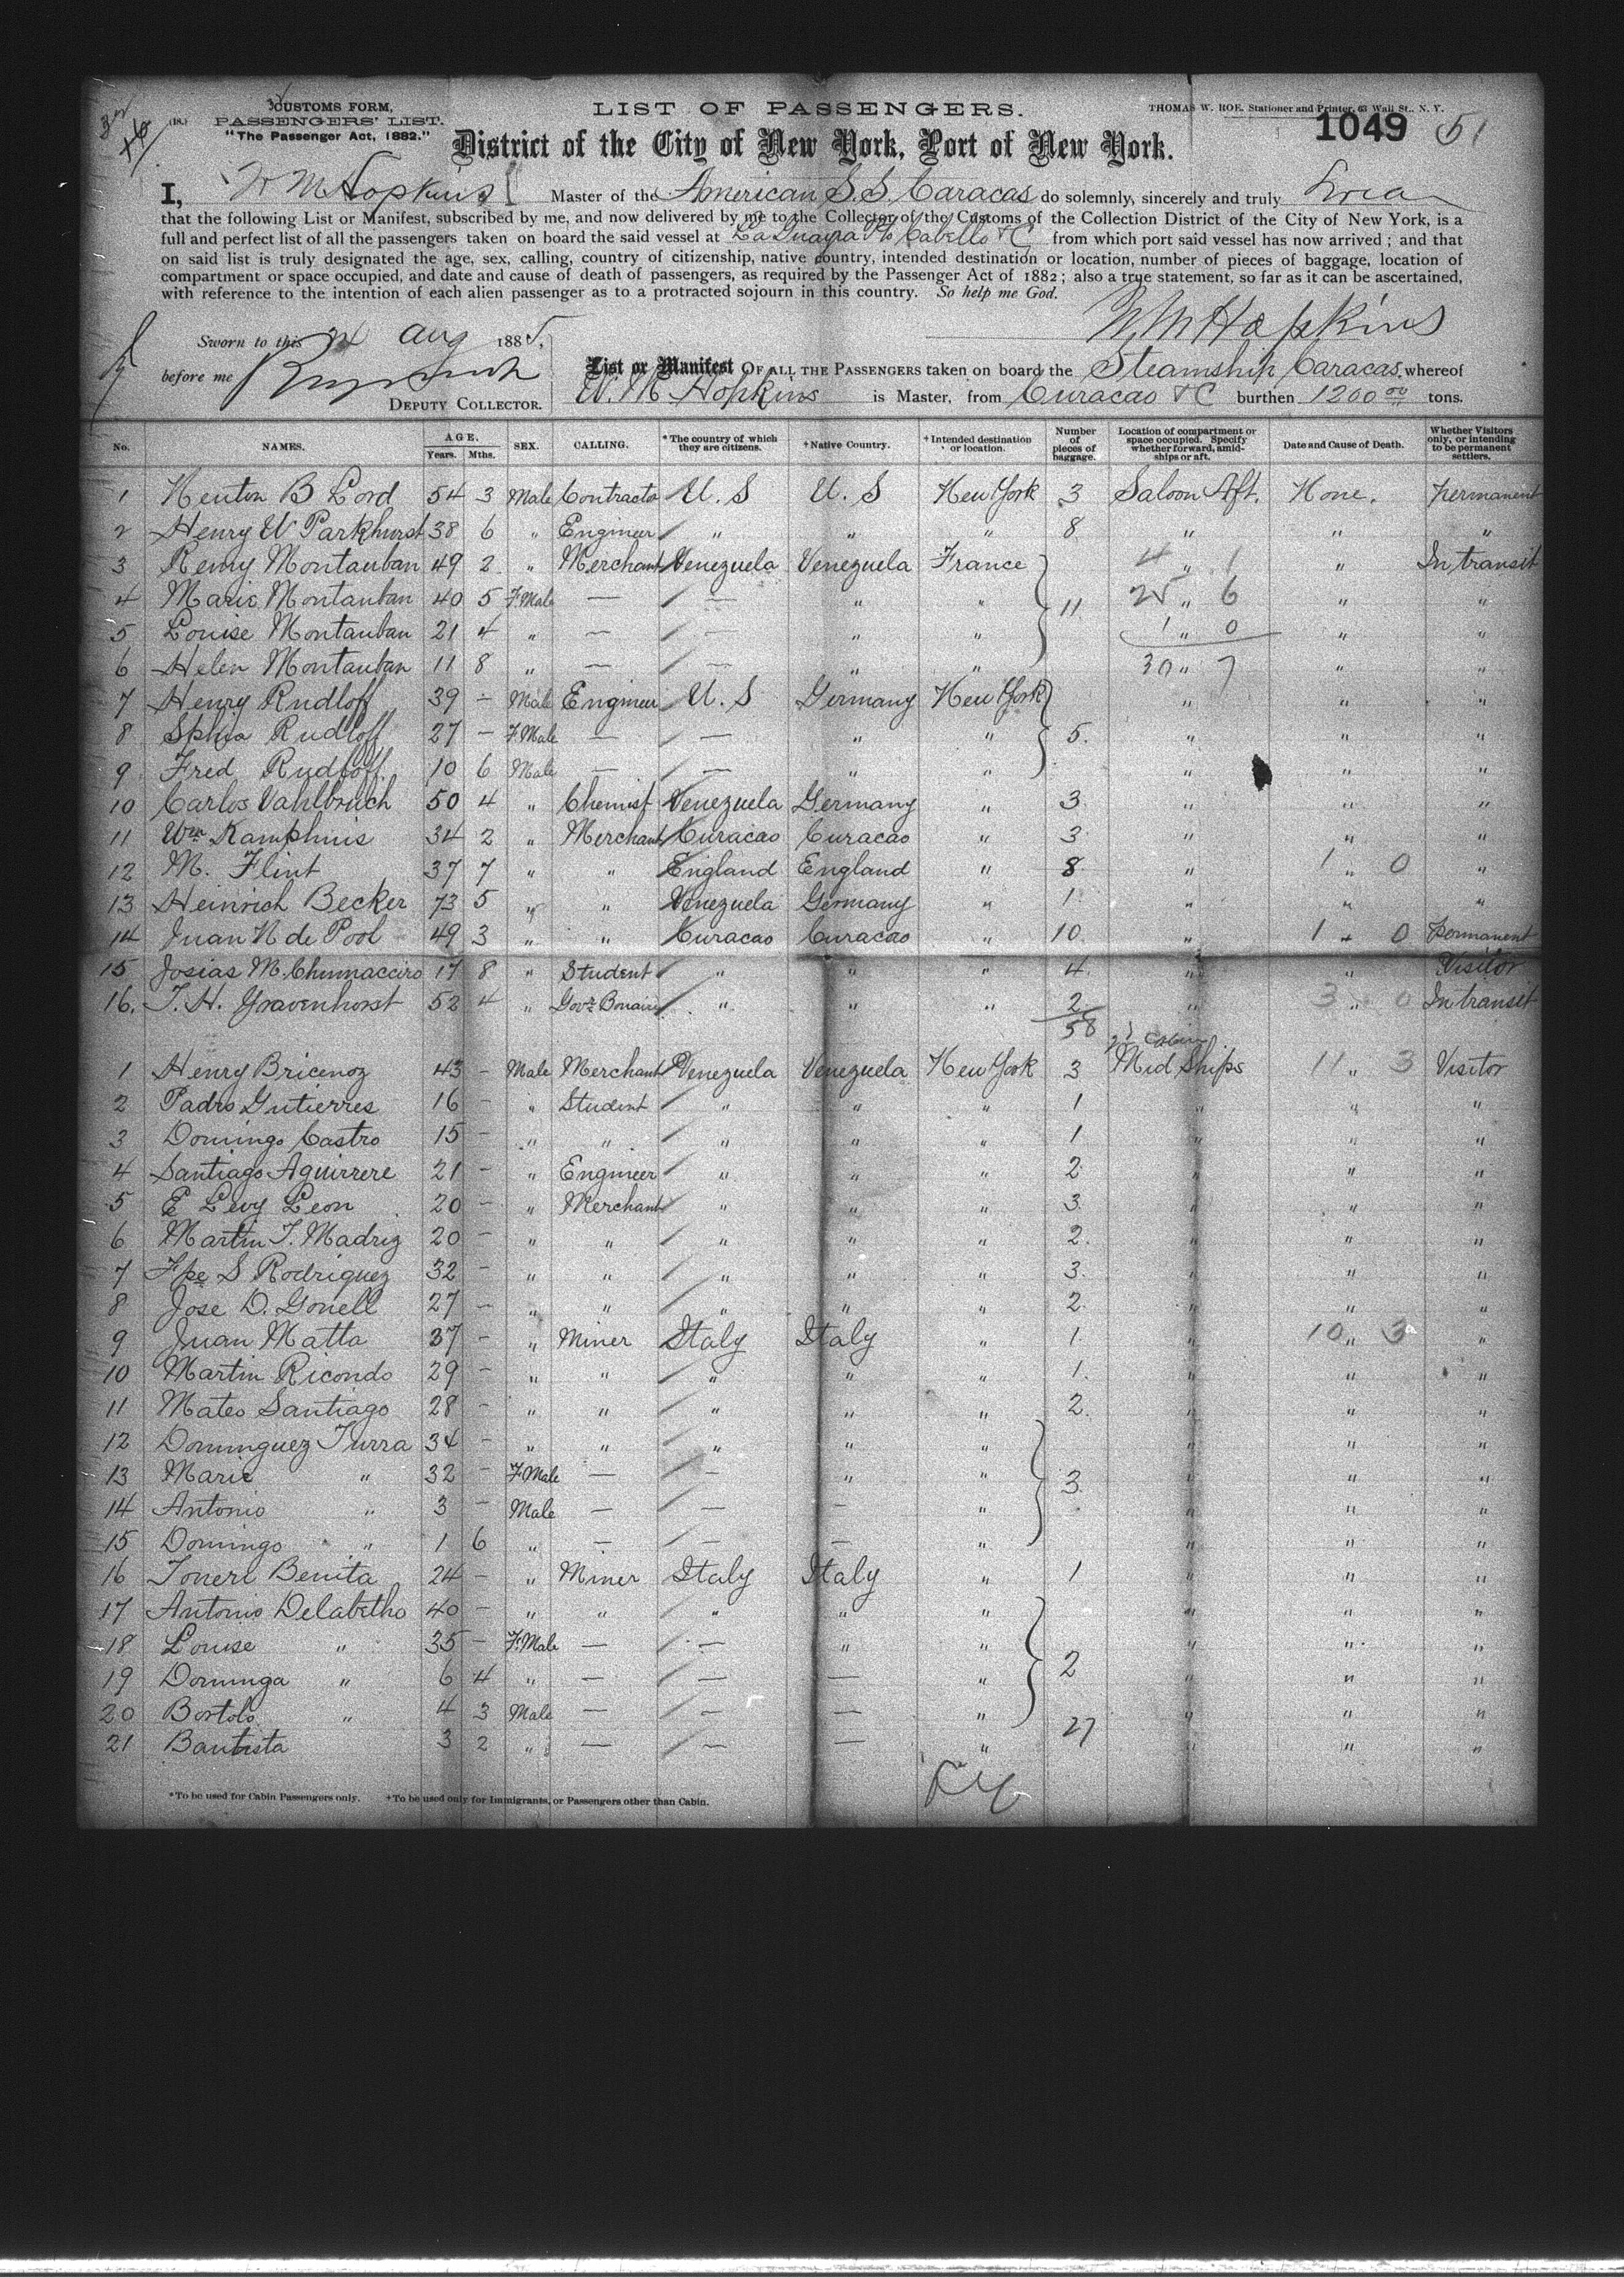 CUSTOMS FORM.
PASSENGERS' LIST.
"The Passenger Act, 1882."
LIST OF PASSENGERS.
THOMAS W. ROE, Stationer and Printer, 63 Wall St., N. Y.
1049 51
District of the City of New York, Port of New York.
I, W M Hopkins Master of the American S.S. Caracas do solemnly, sincerely and truly
that the following List or Manifest, subscribed by me, and now delivered by me to the Collector of the Customs of the Collection District of the City of New York, is a
full and perfect list of all the passengers taken on board the said vessel at La Guayra Pto Cabello & C from which port said vessel has now arrived; and that
on said list is truly designated the age, sex, calling, country of citizenship, native country, intended destination or location, number of pieces of baggage, location of
compartment or space occupied, and date and cause of death of passengers, as required by the Passenger Act of 1882; also a true statement, so far as it can be ascertained,
with reference to the intention of each alien passenger as to a protracted sojourn in this country. So help me God.
W M Hopkins
Sworn to this Aug 1885,
before me
DEPUTY COLLECTOR.
List or Manifest OF ALL THE PASSENGERS taken on board the Steamship Caracas, whereof
W. M Hopkins is Master, from Curacao & C burthen 1200 00 tons.
No. NAMES. AGE. Years. Mths. SEX. CALLING. *The country of which they are citizens. †Native Country. †Intended destination or location. Number of pieces of baggage. Location of compartment or space occupied. Specify whether forward, amidships or aft. Date and Cause of Death. Whether Visitors only, or intending to be permanent settlers.
1 Henton B Lord 54 3 Male Contractor U. S U. S New York 3 Saloon Aft. None. Permanent
2 Henry W Parkhurst 38 6 " Engineer " " " 8 " " "
3 Remy Montauban 49 2 " Merchant Venezuela Venezuela France 4 " 1 " In transit
4 Marie Montauban 40 5 F.Male — — " " 11 25 " 6 " "
5 Louise Montauban 21 4 " — — " " 1 " 0 " "
6 Helen Montauban 11 8 " — — " " 30 " 7 " "
7 Henry Rudloff 39 - Male Engineer U. S Germany New York " " "
8 Sphia Rudloff 27 - F.Male — — " " 5. " " "
9 Fred Rudloff 10 6 Male — — " " " " "
10 Carlos Vahlbruch 50 4 " Chemist Venezuela Germany " 3 " " "
11 Wm Kamphuis 34 2 " Merchant Curacao Curacao " 3 " " "
12 M. Flint 37 7 " " England England " 8 " 1 " 0 "
13 Heinrich Becker 73 5 " " Venezuela Germany " 1 " " "
14 Juan N de Pool 49 3 " " Curacao Curacao " 10 " 1 " 0 Permanent
15 Josias M. Chumacciro 17 8 " Student " " " 4 " " Visitor
16. T. H. Gravenhorst 52 4 " Govr Bonaire " " " 2 " 3 " 0 In transit
58
2d Cabin
1 Henry Bricenoz 43 - Male Merchant Venezuela Venezuela New York 3 Mid Ships 11 " 3 Visitor
2 Padro Gutierres 16 - " Student " " " 1 " " "
3 Domingo Castro 15 - " " " " " 1 " " "
4 Santiago Aguirrere 21 - " Engineer " " " 2 " " "
5 E Levy Leon 20 - " Merchant " " " 3 " " "
6 Martin T. Madriz 20 - " " " " " 2 " " "
7 Fpe S Rodriguez 32 - " " " " " 3. " " "
8 Jose D. Gonell 27 - " " " " " 2 " " "
9 Juan Matta 37 - " Miner Italy Italy " 1 " 10 " 3 "
10 Martin Ricondo 29 - " " " " " 1. " " "
11 Mateo Santiago 28 - " " " " " 2. " " "
12 Dominguez Turra 34 - " " " " " " " "
13 Marie " 32 - F.Male — — " " 3 " " "
14 Antonio " 3 - Male — — - " " " "
15 Domingo " 1 6 " — — - " " " "
16 Toneri Benita 24 - " Miner Italy Italy " 1 " " "
17 Antonio Delabetho 40 - " " " " " " " "
18 Louise " 35 - F.Male — — " " " " "
19 Dominga " 6 4 " — — — " 2 " " "
20 Bortolo " 4 3 Male — — — " " " "
21 Bautista 3 2 " — — — " 27 " " "
*To be used for Cabin Passengers only. †To be used only for Immigrants, or Passengers other than Cabin.